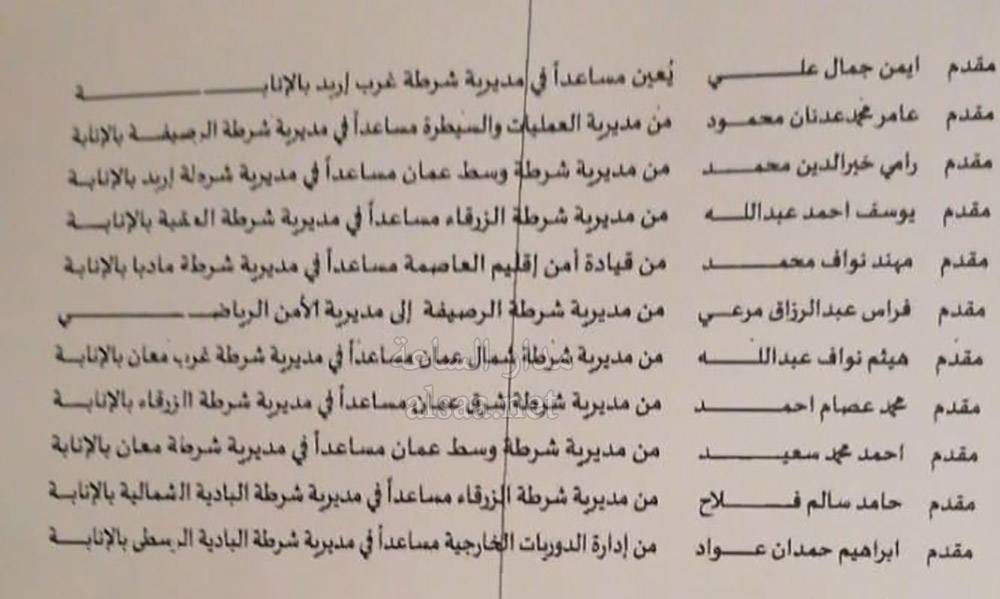 مقدم ايمن جمال علي يُعين مساعداً في مديرية شرطة غرب إربد بالإنابة
مقدم عامر محمد عدنان محمود من مديرية العمليات والسيطرة مساعداً في مديرية شرطة الرصيفة بالإنابة
مقدم رامي خيرالدين محمد من مديرية شرطة وسط عمان مساعداً في مديرية شرطة إربد بالإنابة
مقدم يوسف احمد عبدالله من مديرية شرطة الزرقاء مساعداً في مديرية شرطة العقبة بالإنابة
مقدم مهند نواف محمد من قيادة أمن إقليم العاصمة مساعداً في مديرية شرطة مادبا بالإنابة
مقدم فراس عبدالرزاق مرعي من مديرية شرطة الرصيفة إلى مديرية الأمن الرياضي
مقدم هيثم نواف عبدالله من مديرية شرطة شمال عمان مساعداً في مديرية شرطة غرب معان بالإنابة
مدار الساعة
مقدم محمد عصام احمد من مديرية شرطة شرق عمان مساعداً في مديرية شرطة الزرقاء بالإنابة
alsaa.net
مقدم احمد محمد سعيد من مديرية شرطة وسط عمان مساعداً في مديرية شرطة معان بالإنابة
مقدم حامد سالم فلاح من مديرية شرطة الزرقاء مساعداً في مديرية شرطة البادية الشمالية بالإنابة
مقدم ابراهيم حمدان عواد من إدارة الدوريات الخارجية مساعداً في مديرية شرطة البادية الوسطى بالإنابة